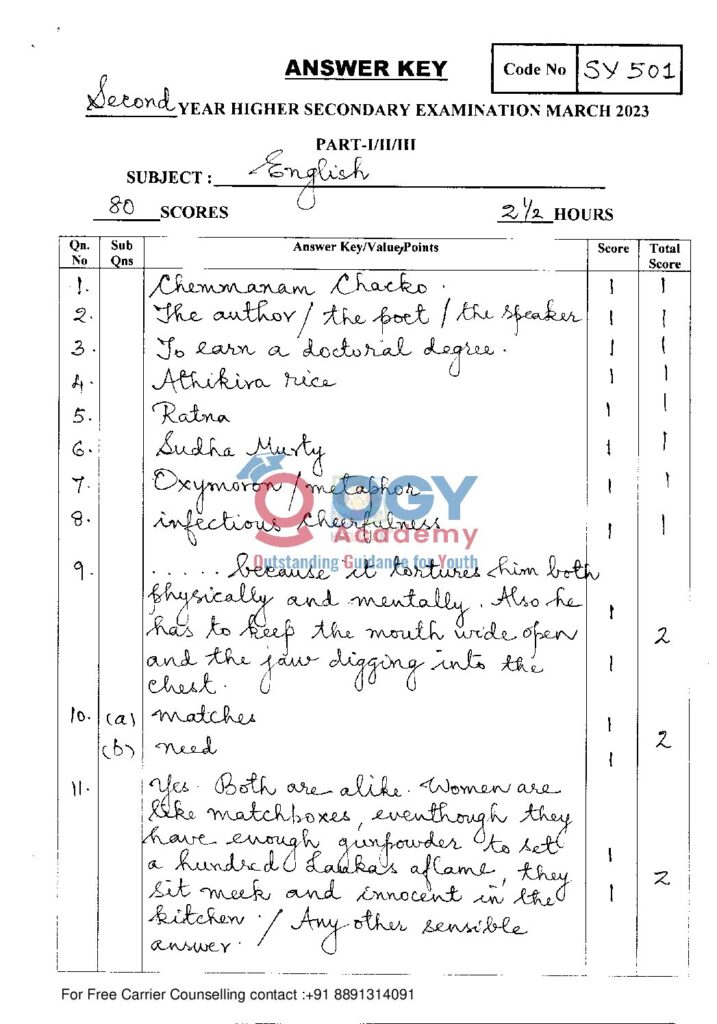 ANSWER KEY
Code No SY 501
Second YEAR HIGHER SECONDARY EXAMINATION MARCH 2023
PART-I/II/III
SUBJECT : English
80 SCORES 2½ HOURS
Qn. No Sub Qns Answer Key/Value Points Score Total Score
1. Chemmanam Chacko. 1 1
2. The author / the poet / the speaker 1 1
3. To earn a doctoral degree. 1 1
4. Athikira rice 1 1
5. Ratna 1 1
6. Sudha Murty 1 1
7. Oxymoron / metaphor 1 1
8. infectious cheerfulness 1 1
OGY
Academy
Outstanding Guidance for Youth
9. ...... because it tortures him both
physically and mentally. Also he 1
has to keep the mouth wide open 2
and the jaw digging into the 1
chest.
10. (a) matches 1 2
(b) need 1
11. Yes. Both are alike. Women are
like matchboxes, eventhough they
have enough gunpowder to set
a hundred Lankas aflame, they 1 2
sit meek and innocent in the 1
kitchen. / Any other sensible
answer.
For Free Carrier Counselling contact :+91 8891314091